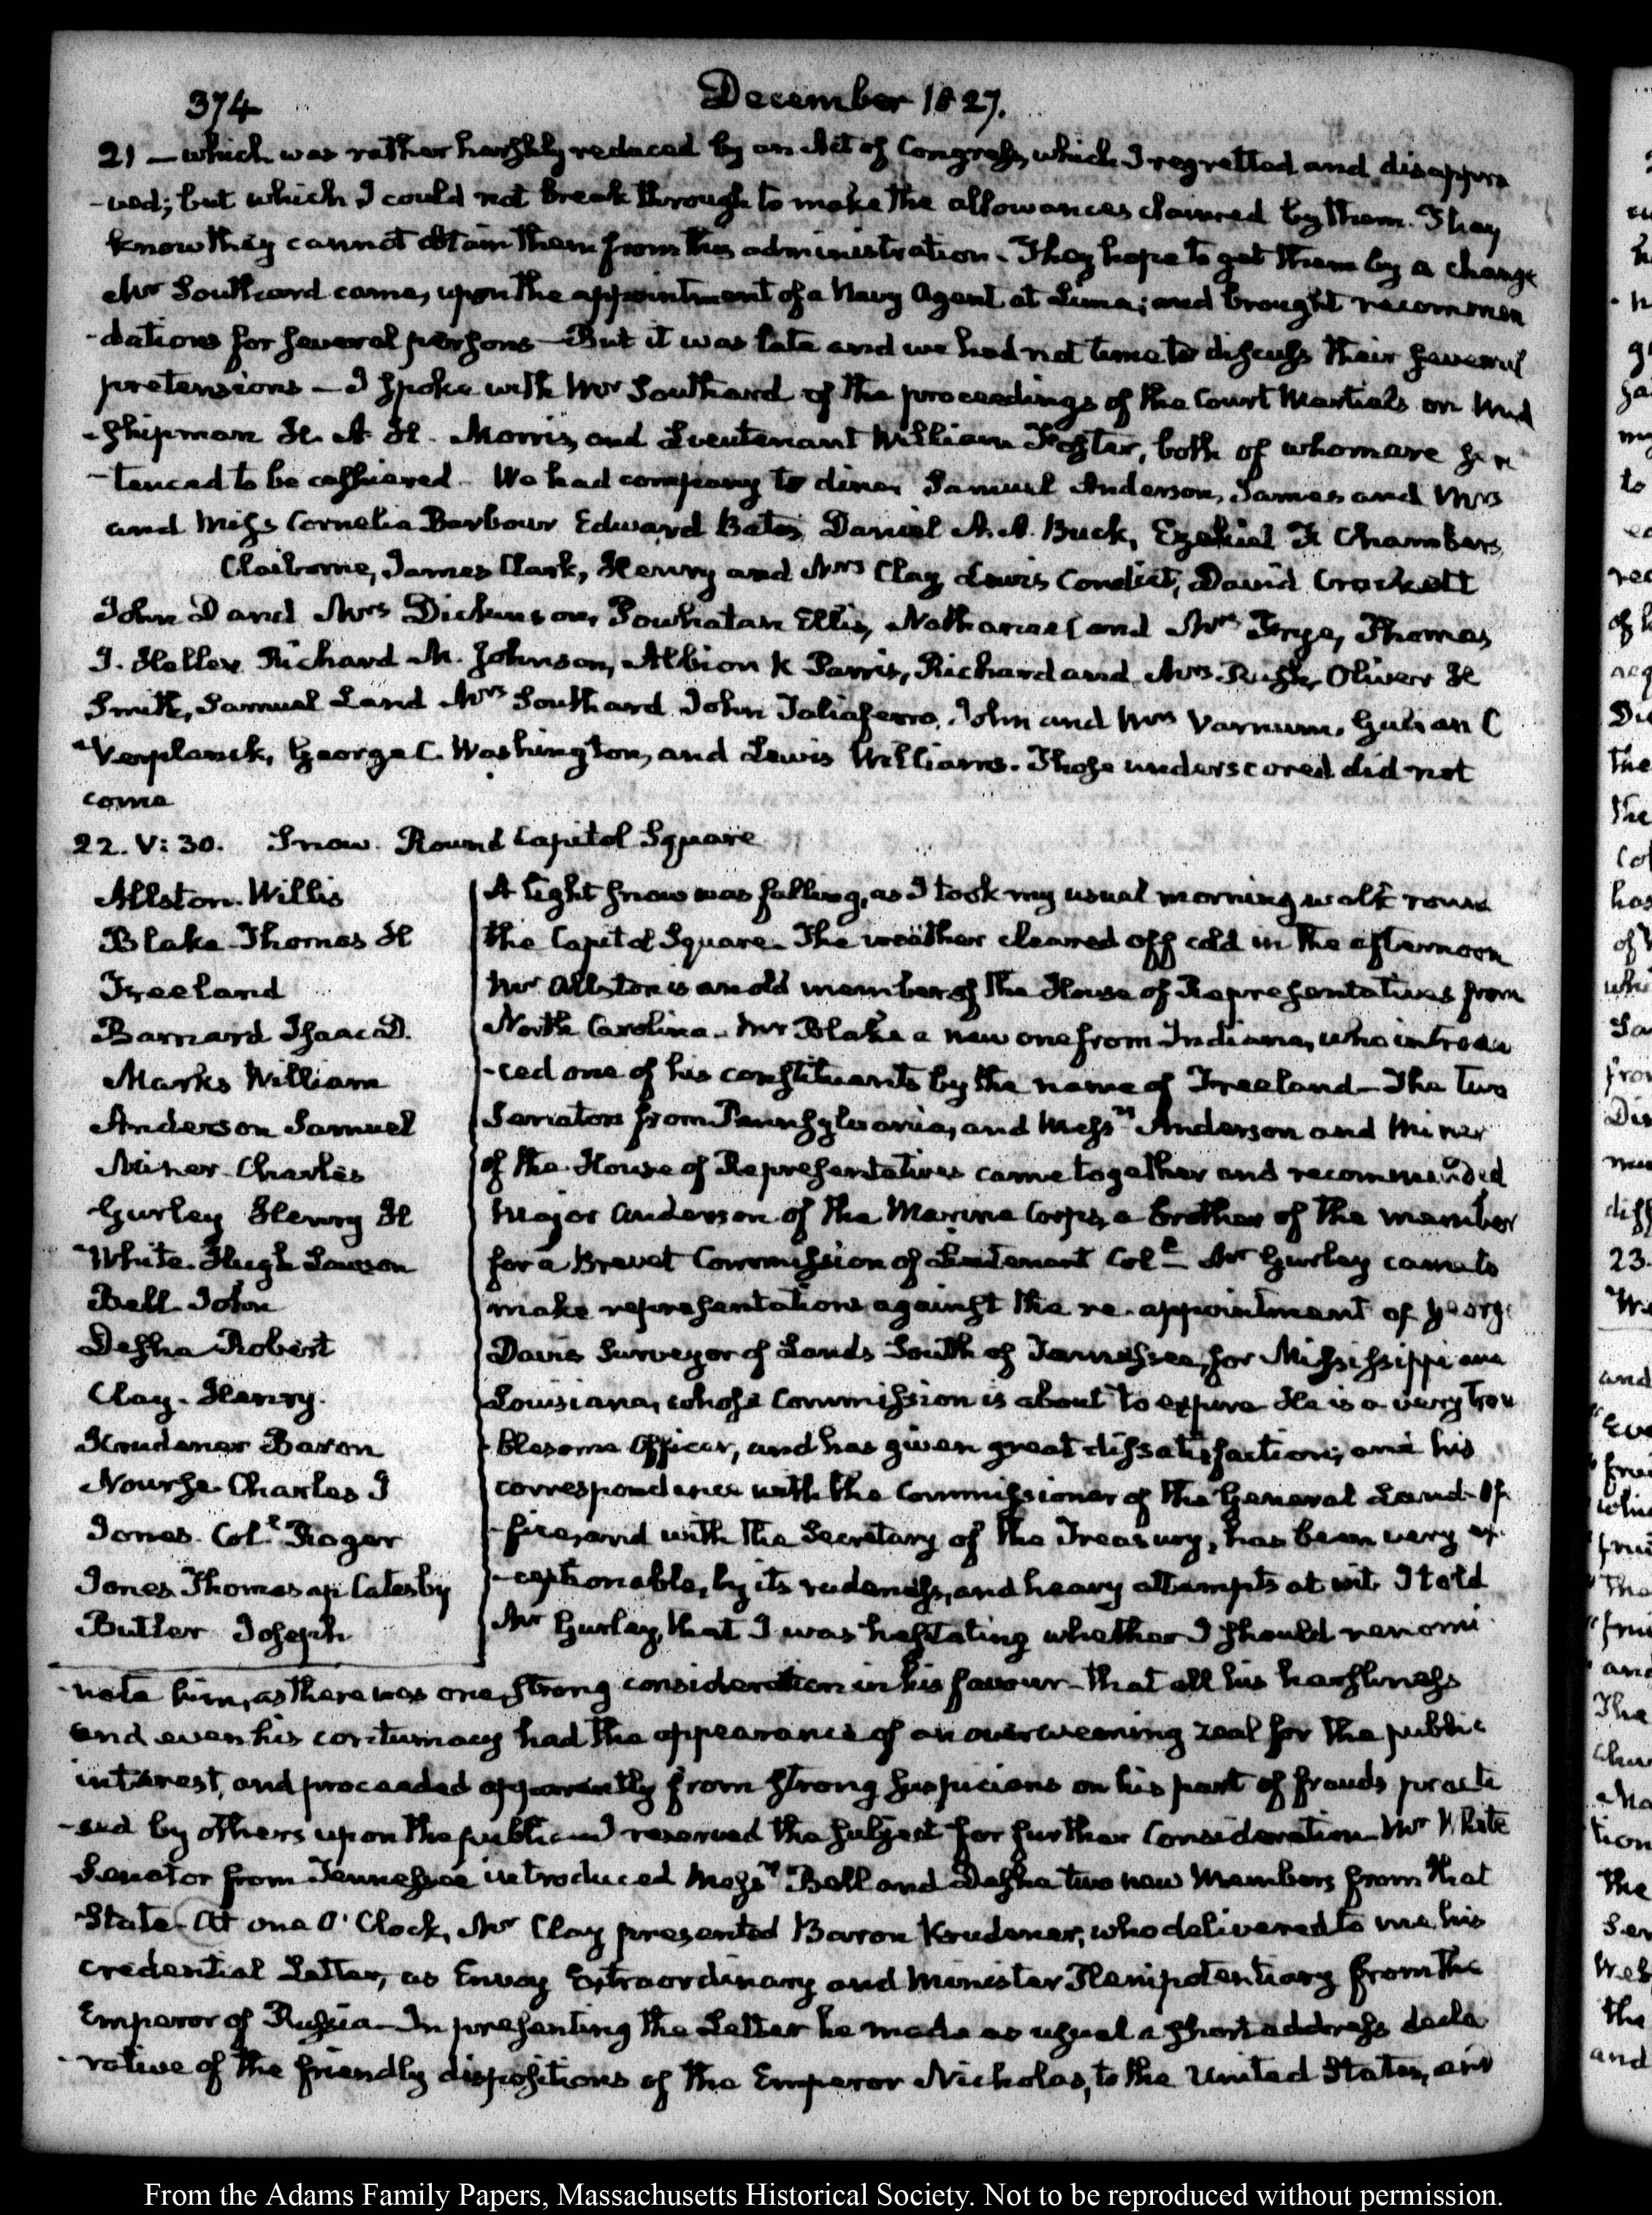 374
December 1827.
21 — which was rather harshly reduced by an Act of Congress, which I regretted and disappro
-ved; but which I could not break through to make the allowances claimed by them. They
know they cannot obtain them from this administration. They hope to get them by a change
Mr Southard came, upon the appointment of a Navy Agent at Lima; and brought recommen
-dations for several persons — But it was late and we had not time to discuss their several
pretensions — I spoke with Mr Southard of the proceedings of the Court Martials on Mid
-shipman H. A. H. Morris, and Lieutenant William Foster, both of whom are sen
-tenced to be cashiered. We had company to dine, Samuel Anderson, James and Mrs
and Miss Cornelia Barbour Edward Bates, Daniel A. A. Buck, Ezekiel F. Chambers,
Claiborne, James Clark, Henry and Mrs Clay Lewis Condict, David Crockett
John D and Mrs Dickinson, Powhatan Ellis, Nathaniel and Mrs Frye, Thomas
J. Hellen Richard M. Johnson, Albion K Parris, Richard and Mrs Rush, Oliver H
Smith, Samuel L and Mrs Southard John Taliaferro, John and Mrs Varnum, Gulian C
Verplanck, George C. Washington, and Lewis Williams. Those underscored did not
come
22. V: 30. Snow. Round Capitol Square
Allston. Willis
Blake Thomas H
Freeland
Barnard Isaac D.
Marks William
Anderson Samuel
Miner Charles
Gurley Henry H
White. Hugh Lawson
Bell John
Desha Robert
Clay. Henry.
Krudener Baron
Nourse Charles J
Jones. Coll. Roger
Jones Thomas ap Catesby
Butler Joseph
A light snow was falling, as I took my usual morning walk round
the Capitol Square. The weather cleared off cold in the afternoon
Mr Allston is an old member of the House of Representatives from
North Carolina. Mr Blake a new one from Indiana, who introdu
-ced one of his constituents by the name of Freeland — The two
Senators from Pennsylvania, and Messrs Anderson and Miner
of the House of Representatives came together and recommended
Major Anderson of the Marine Corps, a brother of the member
for a Brevet Commission of Lieutenant Coll. Mr Gurley came to
make representations against the re-appointment of George
Davis Surveyor of Lands South of Tennessee, for Mississippi and
Louisiana, whose Commission is about to expire He is a very trou
-blesome Officer, and has given great dissatisfaction; and his
correspondence with the Commissioner of the General Land Of
-fice, and with the Secretary of the Treasury, has been very ex
-ceptionable, by its rudeness, and heavy attempts at wit. I told
Mr Gurley, that I was hesitating whether I should renomi
-nate him, as there was one strong consideration in his favour — that all his harshness
and even his contumacy had the appearance of an overweening zeal for the public
interest, and proceeded apparently from strong suspicions on his part of frauds practi
-sed by others upon the public — I reserved the subject for further Consideration. Mr White
Senator from Tennessee introduced Messrs Bell and Desha two new Members from that
State. At one O'Clock, Mr Clay presented Baron Krudener, who delivered to me his
credential Letter, as Envoy Extraordinary and Minister Plenipotentiary from the
Emperor of Russia — In presenting the Letter he made as usual a short address decla
-rative of the friendly dispositions of the Emperor Nicholas, to the United States, and
From the Adams Family Papers, Massachusetts Historical Society. Not to be reproduced without permission.